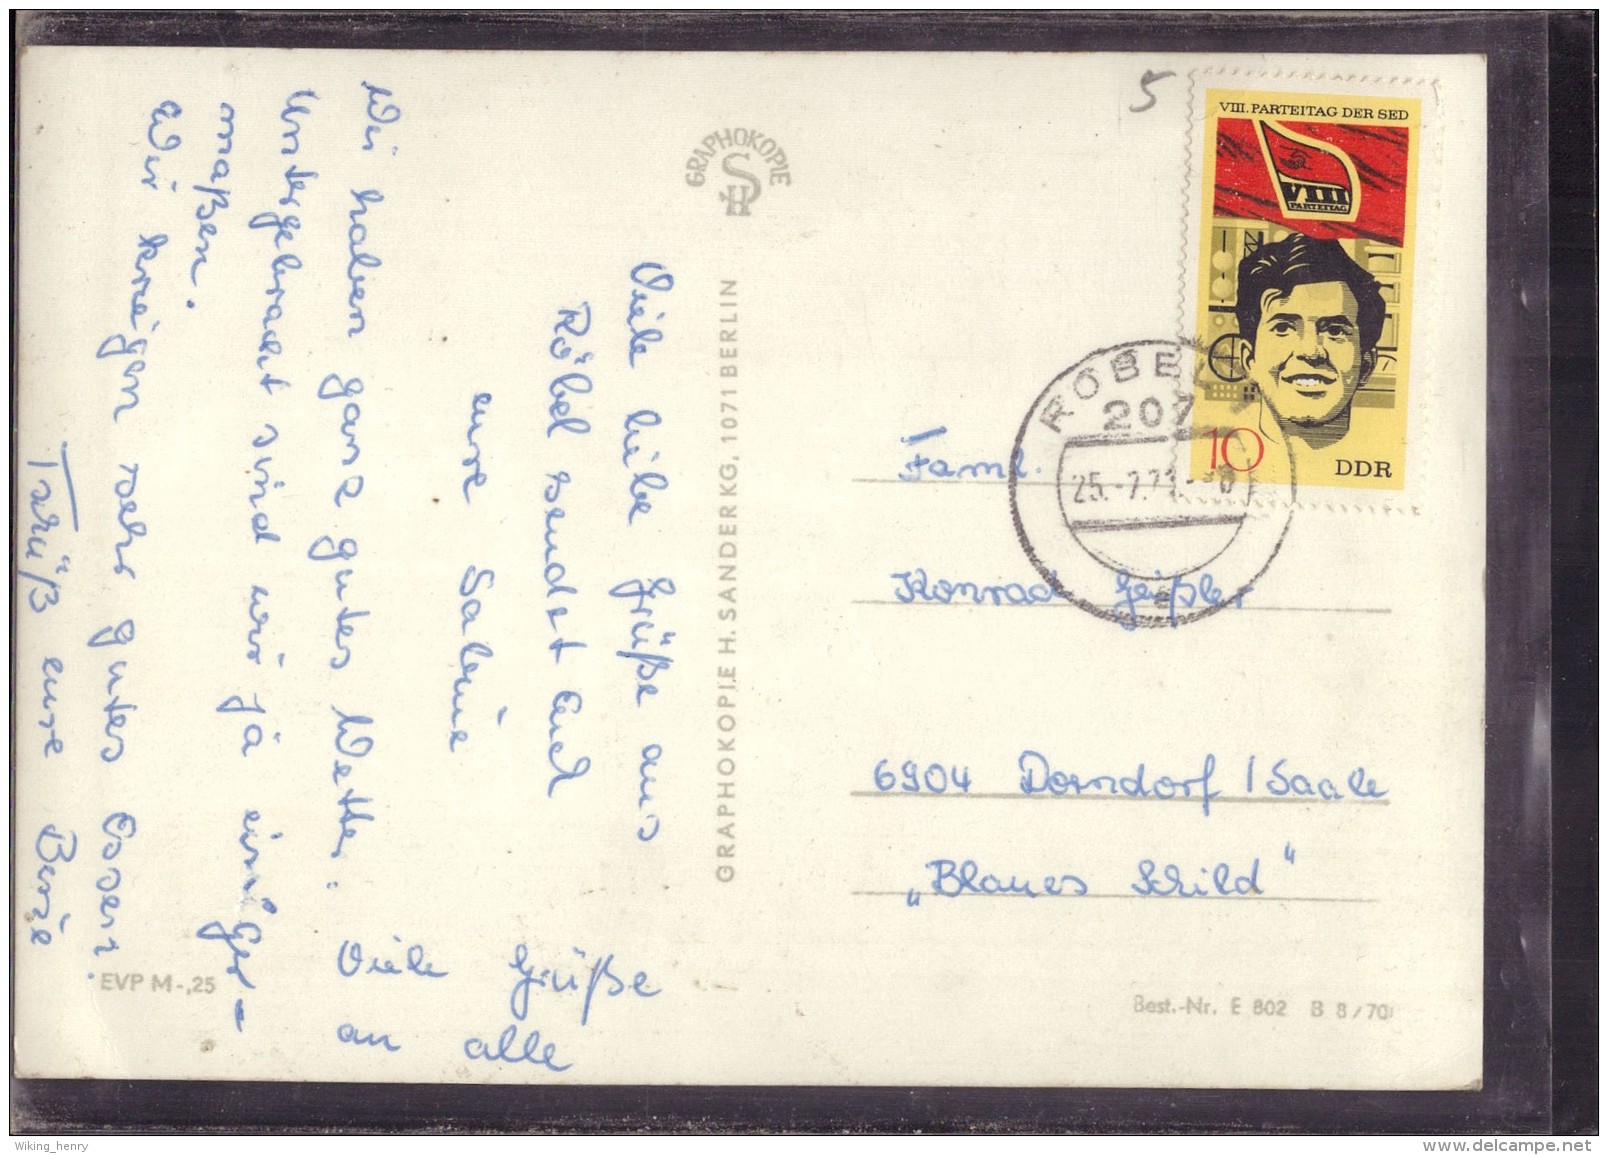 Viele liebe Grüße aus
Röbel sendet Euch
eure Sabine
Wir haben ganz gutes Wetter.
Untergebracht sind wir ja einiger-
maßen.
Wir kriegen sehr gutes Essen.
Tschüß eure Biene
Viele Grüße
an alle
GRAPHOKOPIE
SH
GRAPHOKOPIE H. SANDER KG, 1071 BERLIN
EVP M -,25
5
VIII. PARTEITAG DER SED
VIII
PARTEITAG
10
DDR
RÖBEL
207
25.-7.71
a
Faml.
Konrad Geißler
6904 Dorndorf / Saale
„Blaues Schild“
Best.-Nr. E 802 B 8/70
Wiking_henry
www.delcampe.net